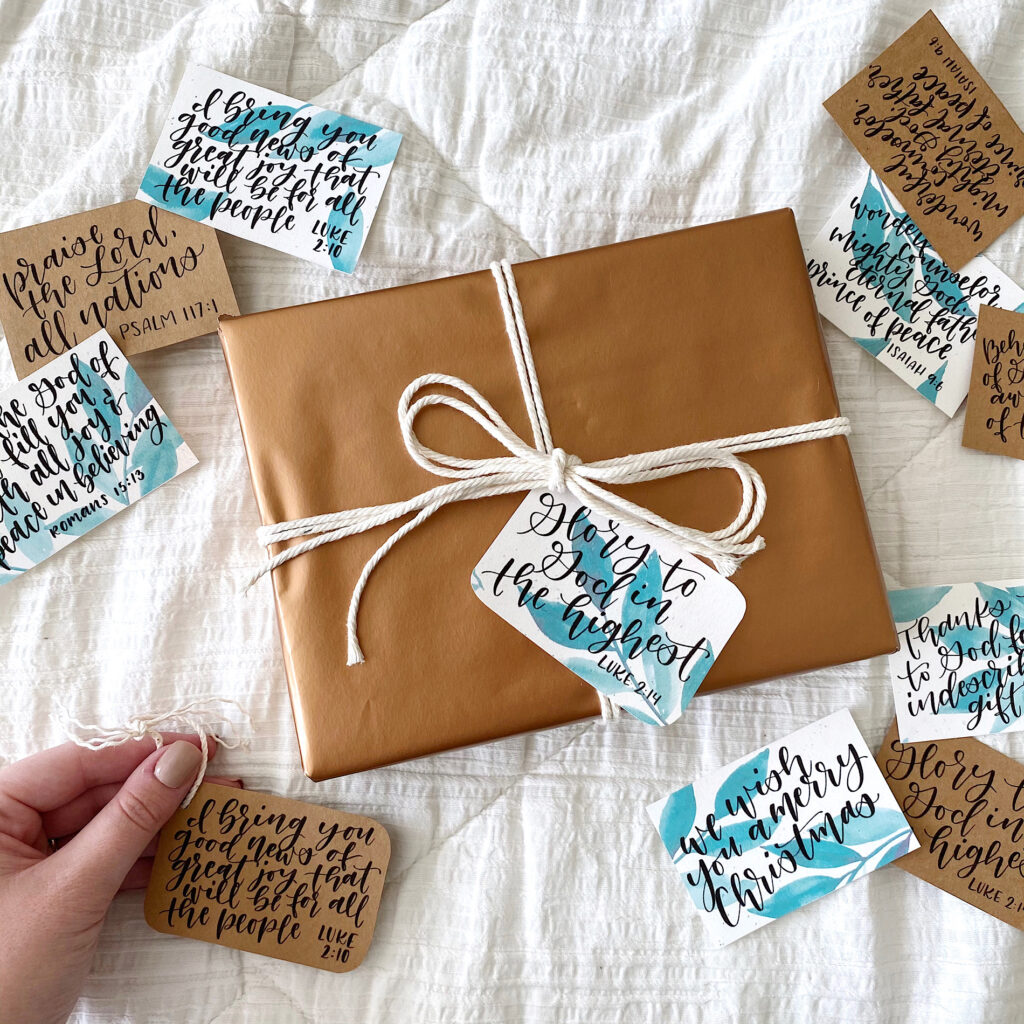 I bring you
good news of
great joy that
will be for all
the people
LUKE
2:10
Praise
the Lord,
all nations
PSALM 117:1
God of
fill you
all joy &
peace in believing
Romans 15:13
Glory to
God in
the highest
LUKE 2:14
wonderful
counselor
mighty God
Eternal father
prince of peace
ISAIAH 9:6
wonderful
counselor
mighty God,
Eternal
prince of peace
ISAIAH 9:6
of
Thanks
to God
gift
we wish
you a merry
Christmas
Glory
God in
LUKE
I bring you
good news of
great joy that
will be for all
the people
LUKE
2:10